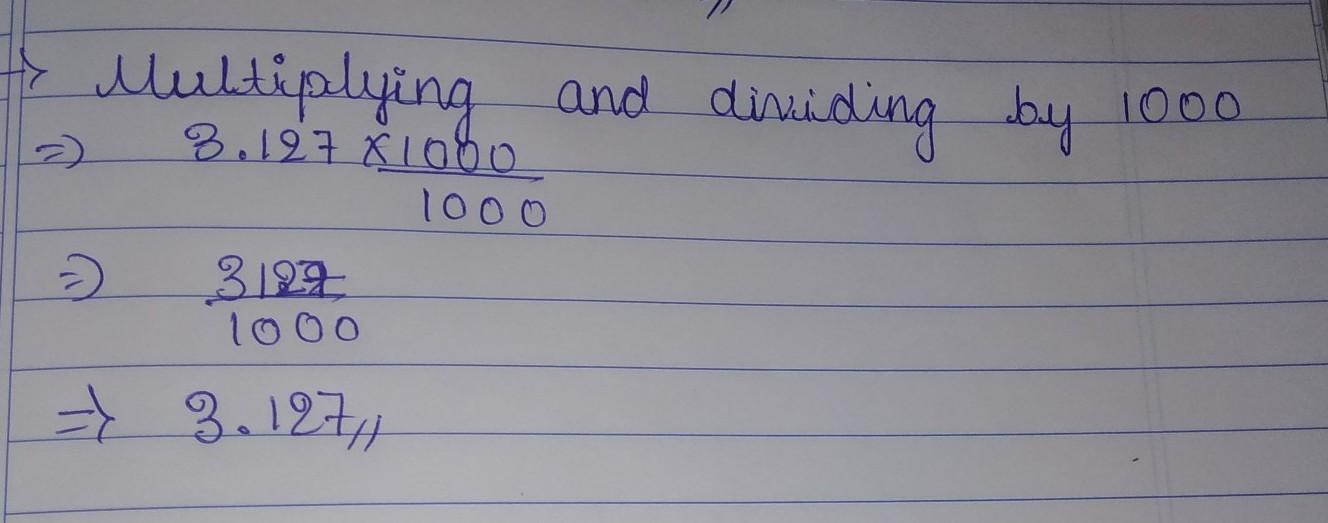 //
→ Multiplying and dividing by 1000
⇒ 3.127 × 1000
1000
⇒ 3127
1000
⇒ 3.127 //